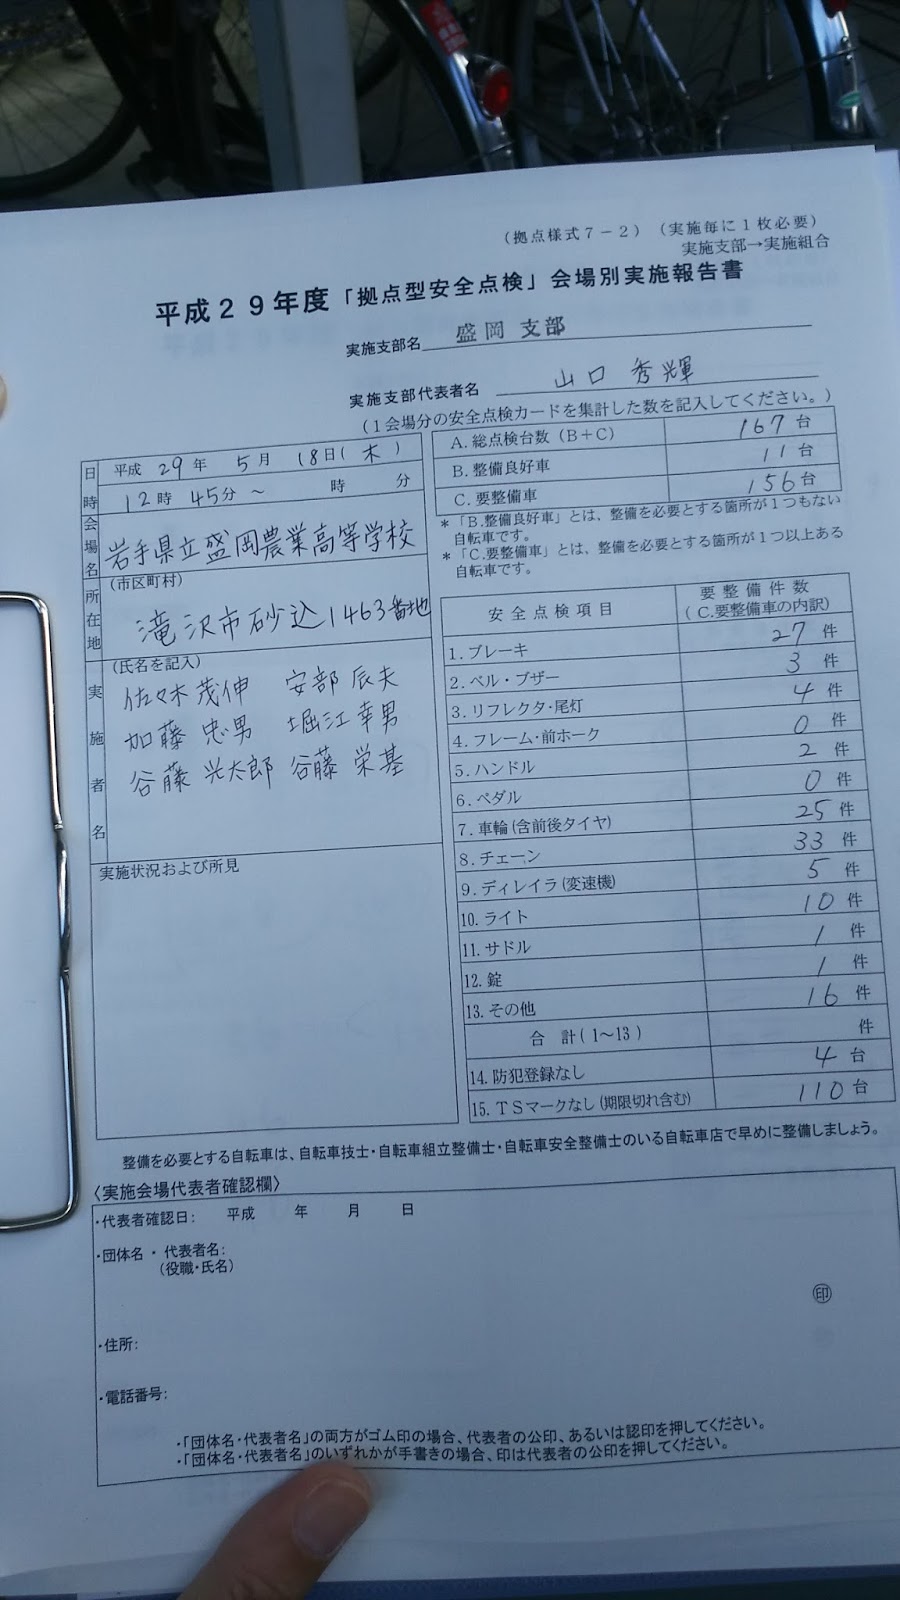 （拠点様式７－２）（実施毎に１枚必要）
実施支部→実施組合
平成２９年度「拠点型安全点検」会場別実施報告書
実施支部名 盛岡 支部
実施支部代表者名 山口 秀輝
（１会場分の安全点検カードを集計した数を記入してください。）
日時 平成 29年 5月 18日( 木 )
12時 45分 ～ 時 分
会場名 岩手県立盛岡農業高等学校
所在地 (市区町村)
滝沢市砂込1463番地
実施者名 (氏名を記入)
佐々木 茂伸 安部 辰夫
加藤 忠男 堀江 幸男
谷藤 光太郎 谷藤 栄基
実施状況および所見
A. 総点検台数（B＋C） 167 台
B. 整備良好車 11 台
C. 要整備車 156 台
＊「B.整備良好車」とは、整備を必要とする箇所が１つもない
自転車です。
＊「C.要整備車」とは、整備を必要とする箇所が１つ以上ある
自転車です。
安全点検項目 要整備件数
（C.要整備車の内訳）
1. ブレーキ 27 件
2. ベル・ブザー 3 件
3. リフレクタ・尾灯 4 件
4. フレーム・前ホーク 0 件
5. ハンドル 2 件
6. ペダル 0 件
7. 車輪(含前後タイヤ) 25 件
8. チェーン 33 件
9. ディレイラ(変速機) 5 件
10. ライト 10 件
11. サドル 1 件
12. 錠 1 件
13. その他 16 件
合 計( 1～13 ) 件
14. 防犯登録なし 4 台
15. ＴＳマークなし(期限切れ含む) 110 台
整備を必要とする自転車は、自転車技士・自転車組立整備士・自転車安全整備士のいる自転車店で早めに整備しましょう。
〈実施会場代表者確認欄〉
・代表者確認日： 平成 年 月 日
・団体名・代表者名：
（役職・氏名）
㊞
・住所：
・電話番号：
・「団体名・代表者名」の両方がゴム印の場合、代表者の公印、あるいは認印を押してください。
・「団体名・代表者名」のいずれかが手書きの場合、印は代表者の公印を押してください。